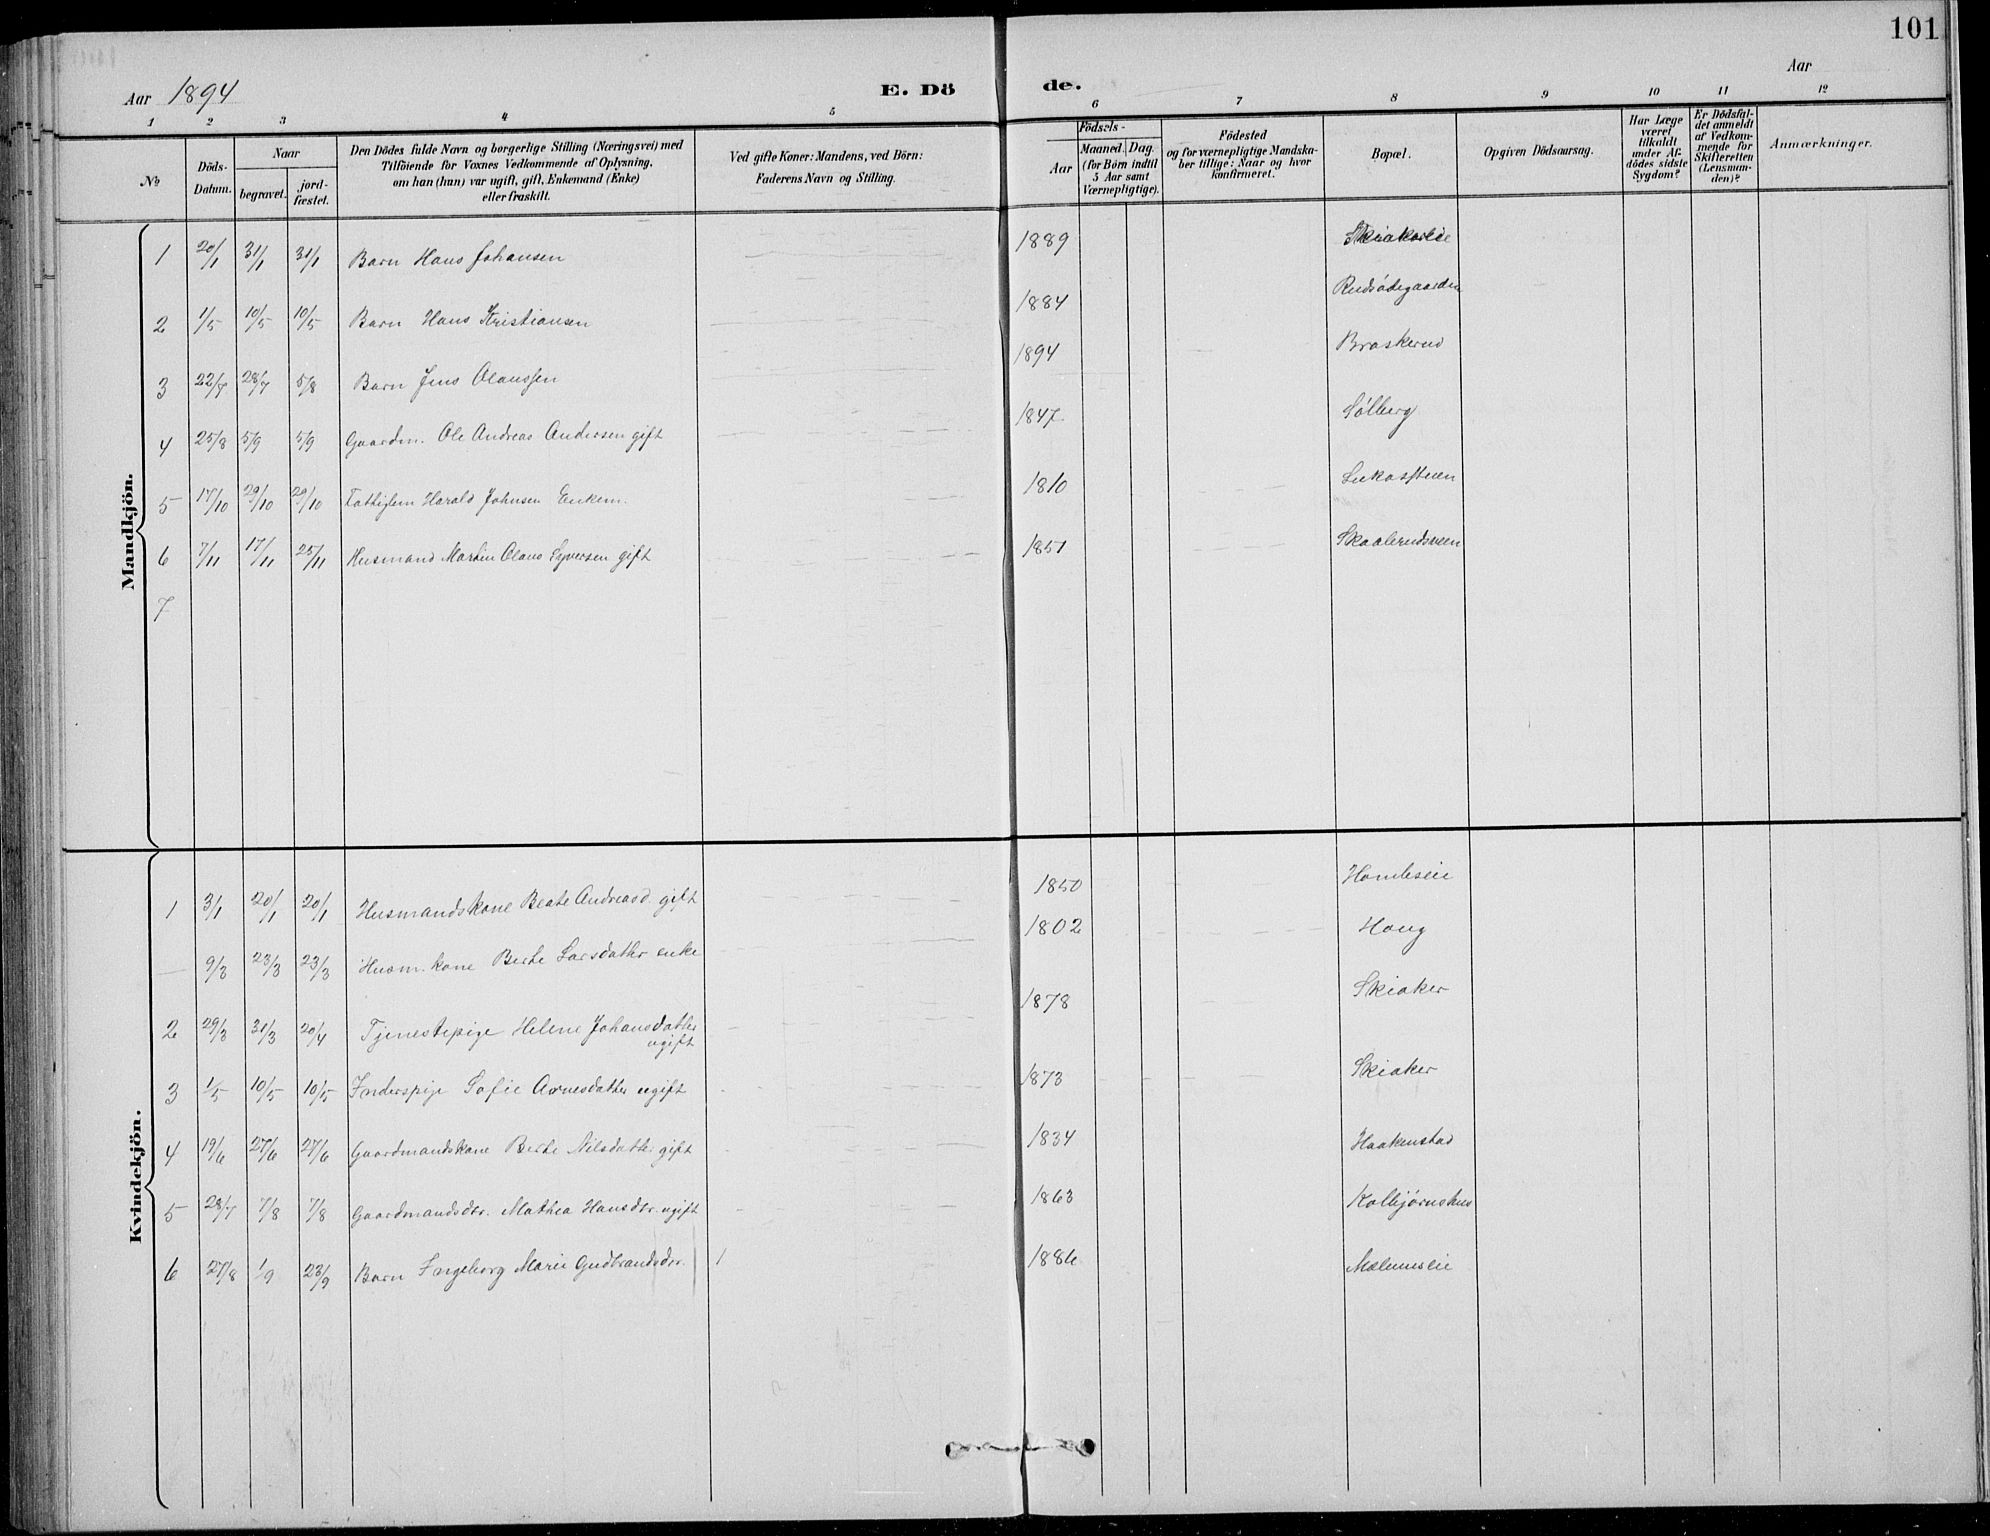 101
Aar 1894
E. Dö
de.
Aar
1 2 3 4 5 6 7 8 9 10 11 12
No
Döds-Datum.
Naar
begravet.
jord-fæstet.
Den Dödes fulde Navn og borgerlige Stilling (Næringsvei) med
Tilföiende for Voxnes Vedkommende af Oplysning,
om han (hun) var ugift, gift, Enkemand (Enke)
eller fraskilt.
Ved gifte Koner: Mandens, ved Börn:
Faderens Navn og Stilling.
Födsels-
Aar
Maaned. Dag.
(for Börn indtil
5 Aar samt
Værnepligtige).
Födested
og for værnepligtige Mandska-
ber tillige: Naar og hvor
konfirmeret.
Bopæl.
Opgiven Dödsaarsag.
Har Læge
været
tilkaldt
under Af-
dödes sidste
Sygdom?
Er Dödsfal-
det anmeldt
af Vedkom-
mende for
Skifteretten
(Lensman-
den)?
Anmærkninger.
Mandkjön.
1 20/1 31/1 31/1 Barn Hans Johansen 1889
2 1/5 10/5 10/5 Barn Hans Kristiansen 1884 Rudsødegaarden
3 22/7 28/7 5/8 Barn Jens Olaussen 1894 Braskerud
4 25/8 5/9 5/9 Gaardm. Ole Andreas Andersen gift 1847 Sølberg
5 17/10 29/10 29/10 Fattiglem Harald Johnsen Enkem. 1810
6 7/11 17/11 25/11 Husmand Martin Olaus Syversen gift 1851 Skaalerudsveen
7
Kvindekjön.
1 3/1 20/1 20/1 Husmandskone Beate Andreasd. gift 1850
— 9/3 23/3 23/3 Husm. kone Berte Larsdatter enke 1802 Houg
2 29/3 31/3 20/4 Tjenestepige Helene Johansdatter 1878 Skiaker
ugift
3 1/5 10/5 10/5 Inderspige Sofie Arnesdatter ugift 1873 Skiaker
4 19/6 27/6 27/6 Gaardmandskone Berte Nilsdatter gift 1834 Haakenstad
5 28/7 7/8 7/8 Gaardmandsdtr. Mathea Hansdtr. ugift 1863 Kolbjørnshus
6 27/8 1/9 23/9 Barn Ingeborg Marie Gudbrandsdtr. 1886 Mælumseie